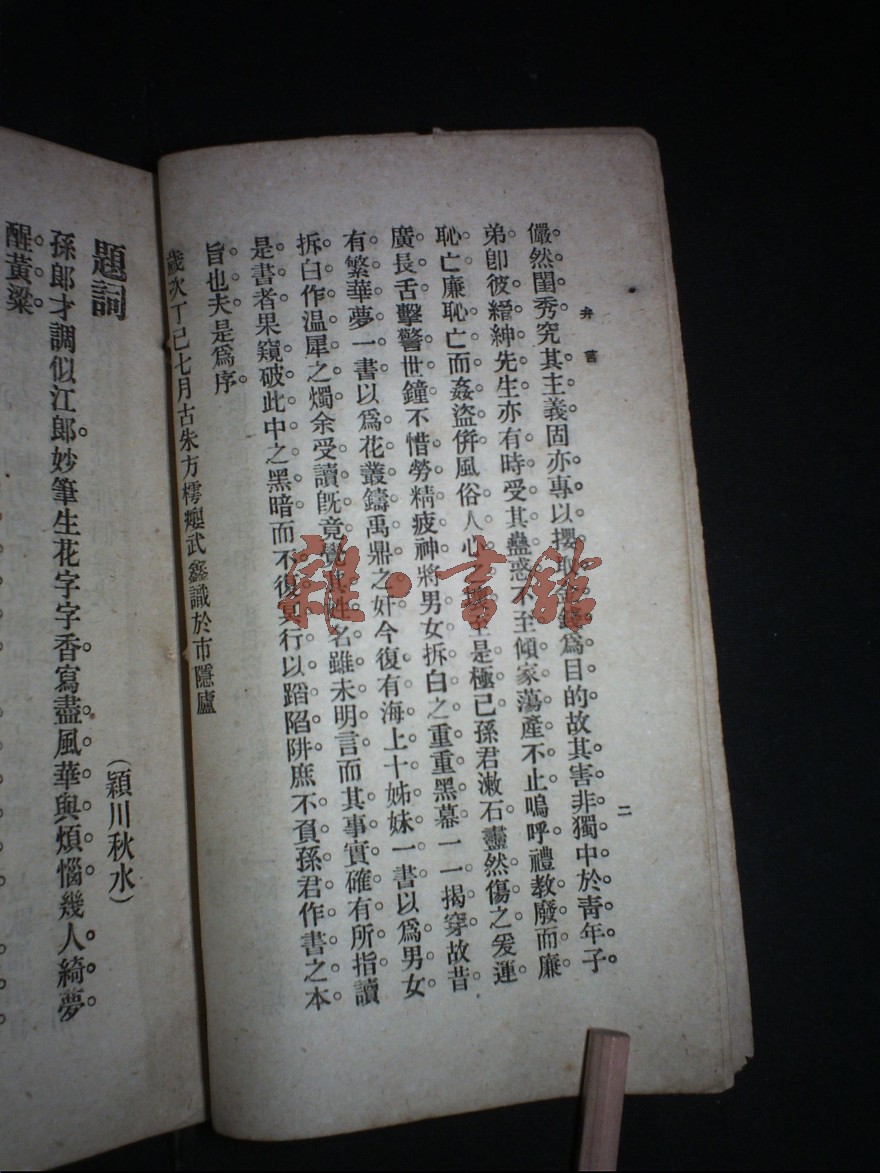 弁言
二
儼然閨秀。究其主義。固亦專以攫取金錢爲目的。故其害非獨中於靑年子
弟。卽彼縉紳先生。亦有時受其蠱惑。不至傾家蕩產不止。嗚呼。禮敎廢而廉
恥亡。廉恥亡而姦盜倂。風俗人心之壞。至是極已。孫君漱石。衋然傷之。爰運
廣長舌。擊警世鐘。不惜勞精疲神。將男女拆白之重重黑幕。一一揭穿。故昔
有繁華夢一書。以爲花叢鑄禹鼎之奸。今復有海上十姊妹一書。以爲男女
拆白作温犀之燭。余受讀旣竟。覺其姓名雖未明言。而其事實確有所指。讀
是書者。果窺破此中之黑暗。而不復冥行以蹈陷阱。庶不負孫君作書之本
旨也夫。是爲序。
歲次丁巳七月古朱方樗癭武鑫識於市隱廬
題詞
(穎川秋水)
孫郎才調似江郎。妙筆生花字字香。寫盡風華與煩惱。幾人綺夢
醒黃粱。
雜·書館